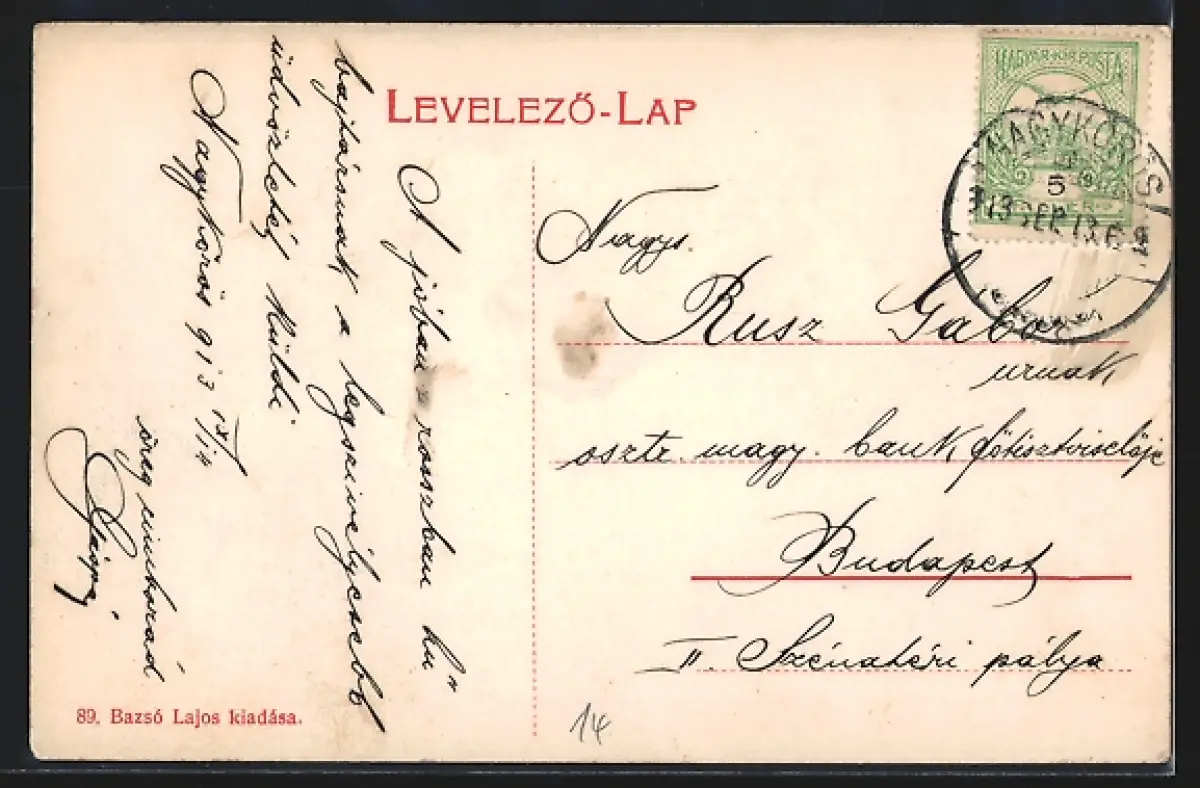 LEVELEZŐ-LAP
A jóban rosszban hű
bajtársnak a legszivélyesebb
üdvözletét küldi
Nagykőrös 913 IX/14
öreg cimborád
MAGYAR·KIR·POSTA
NAGYKŐRÖS
5
913 SEP. 13
Nagys.
Rusz Gábor
urnak
osztr. magy. bank főtisztviselője
Budapest
II. Szénatéri pálya
89. Bazsó Lajos kiadása.
14